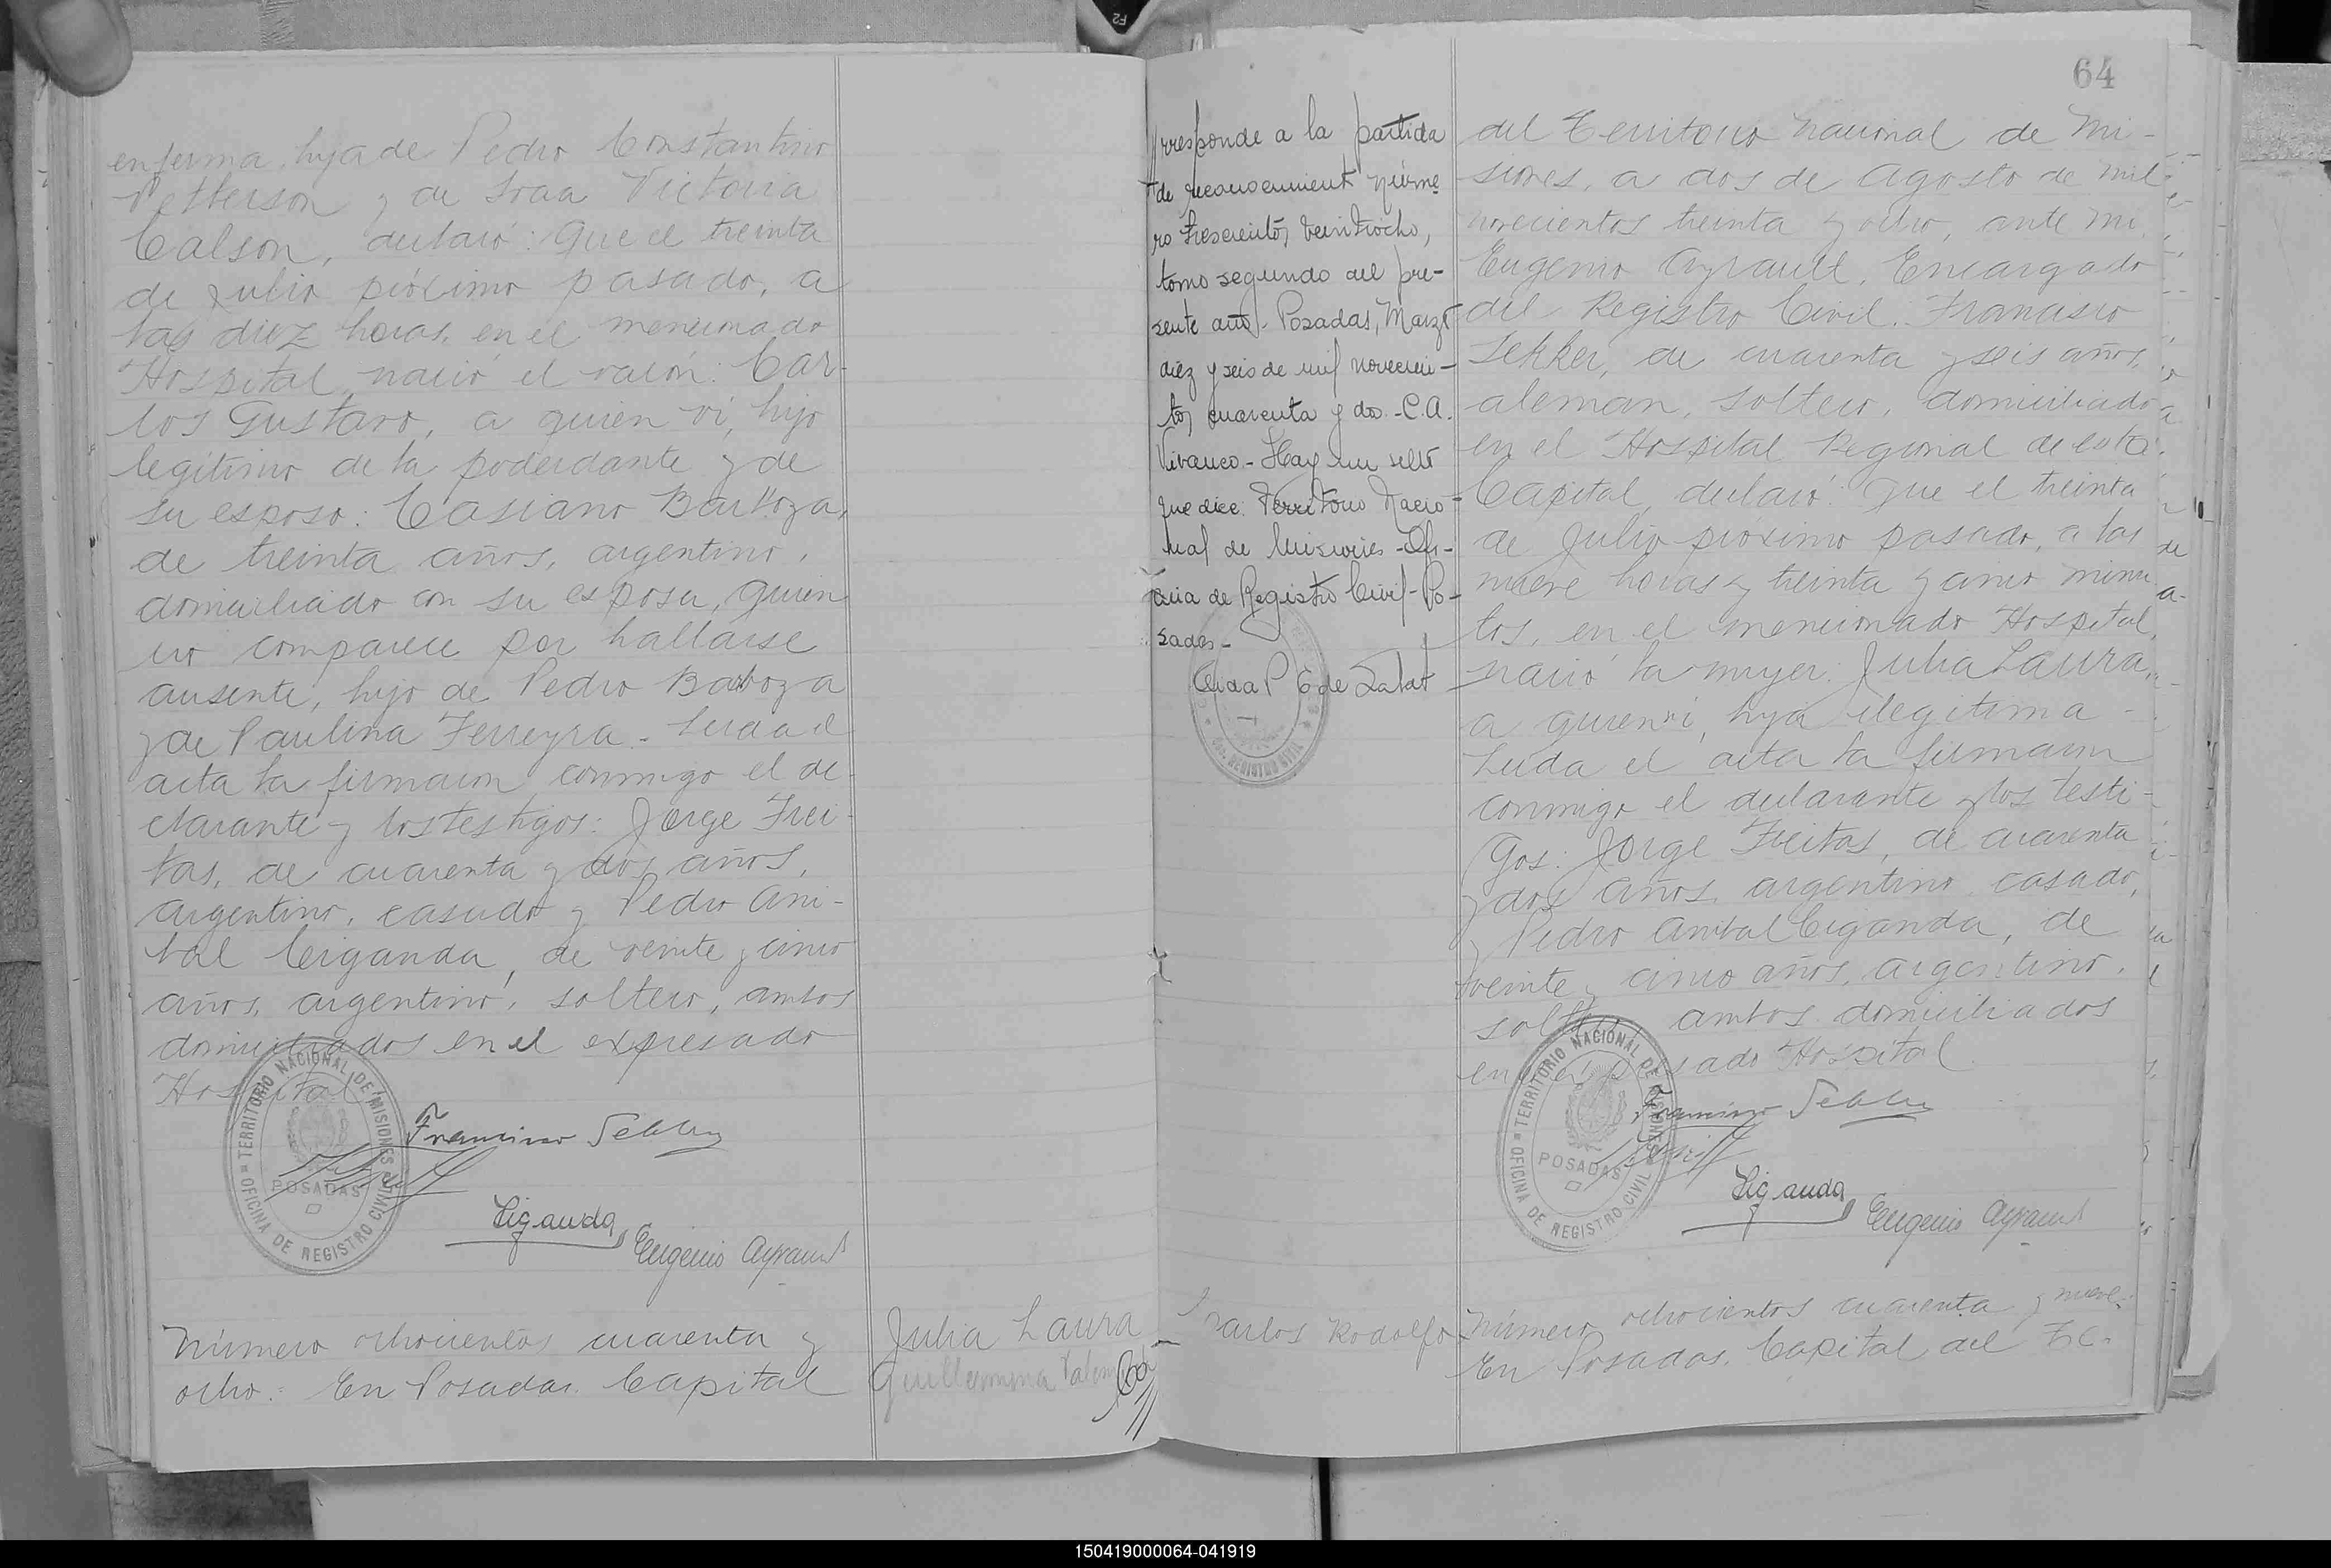 enferma, hija de Pedro Constantino
Petterson y de Victoria
Calson, declaró: Que el treinta
de Julio próximo pasado, a
las diez horas, en el mencionado
Hospital nació el varón: Car-
los Gustavo, a quien vi, hijo
legítimo de la poderdante y de
su esposo: Casiano Barboza,
de treinta años, argentino,
domiciliado con su esposa, quien
no comparece por hallarse
ausente, hijo de Pedro Barboza
y de Paulina Ferreyra. Leida el
acta la firmaron conmigo el de-
clarante y los testigos: Jorge Frei-
tas, de cuarenta y dos años,
argentino, casado y Pedro Aní-
bal Ciganda, de veinte y cinco
años, argentino, soltero, ambos
domiciliados en el expresado
Hospital
TERRITORIO NACIONAL DE MISIONES
OFICINA DE REGISTRO CIVIL
POSADAS
Francisco
Ciganda
Eugenio Ayrault
Número ochocientos cuarenta y
ocho: En Posadas, Capital
Julia Laura
Guillermina
64
rresponde a la partida
de reconocimient núme
ro trescientos veintiocho,
tomo segundo del pre-
sente año. Posadas, Marzo
diez y seis de mil novecien-
tos cuarenta y dos - C.A.
Vivanco - Hay un sello
que dice: Territorio Nacio-
nal de Misiones - Ofi-
cina de Registro Civil - Po-
sadas -
del Territorio Nacional de Mi-
siones, a dos de Agosto de mil
novecientos treinta y ocho, ante mi,
Eugenio Ayrault, Encargado
del Registro Civil: Francisco
Sekker, de cuarenta y seis años,
aleman, soltero, domiciliado
en el Hospital Regional de esta
Capital, declaró: Que el treinta
de Julio próximo pasado, a las
nueve horas y treinta y cinco minu-
tos, en el mencionado Hospital,
nació la mujer: Julia Laura,
a quien vi, hija ilegitima -
Leida el acta la firmaron
conmigo el declarante y los testi-
gos: Jorge Freitas, de cuarenta
y dos años, argentino, casado,
y Pedro Anibal Ciganda, de
veinte y cinco años, argentino,
soltero, ambos domiciliados
en el expresado Hospital
TERRITORIO NACIONAL DE MISIONES
OFICINA DE REGISTRO CIVIL
POSADAS
Francisco
Ciganda
Eugenio Ayrault
Carlos Rodolfo
Número ochocientos cuarenta y nueve:
En Posadas, Capital del Te-
150419000064-041919